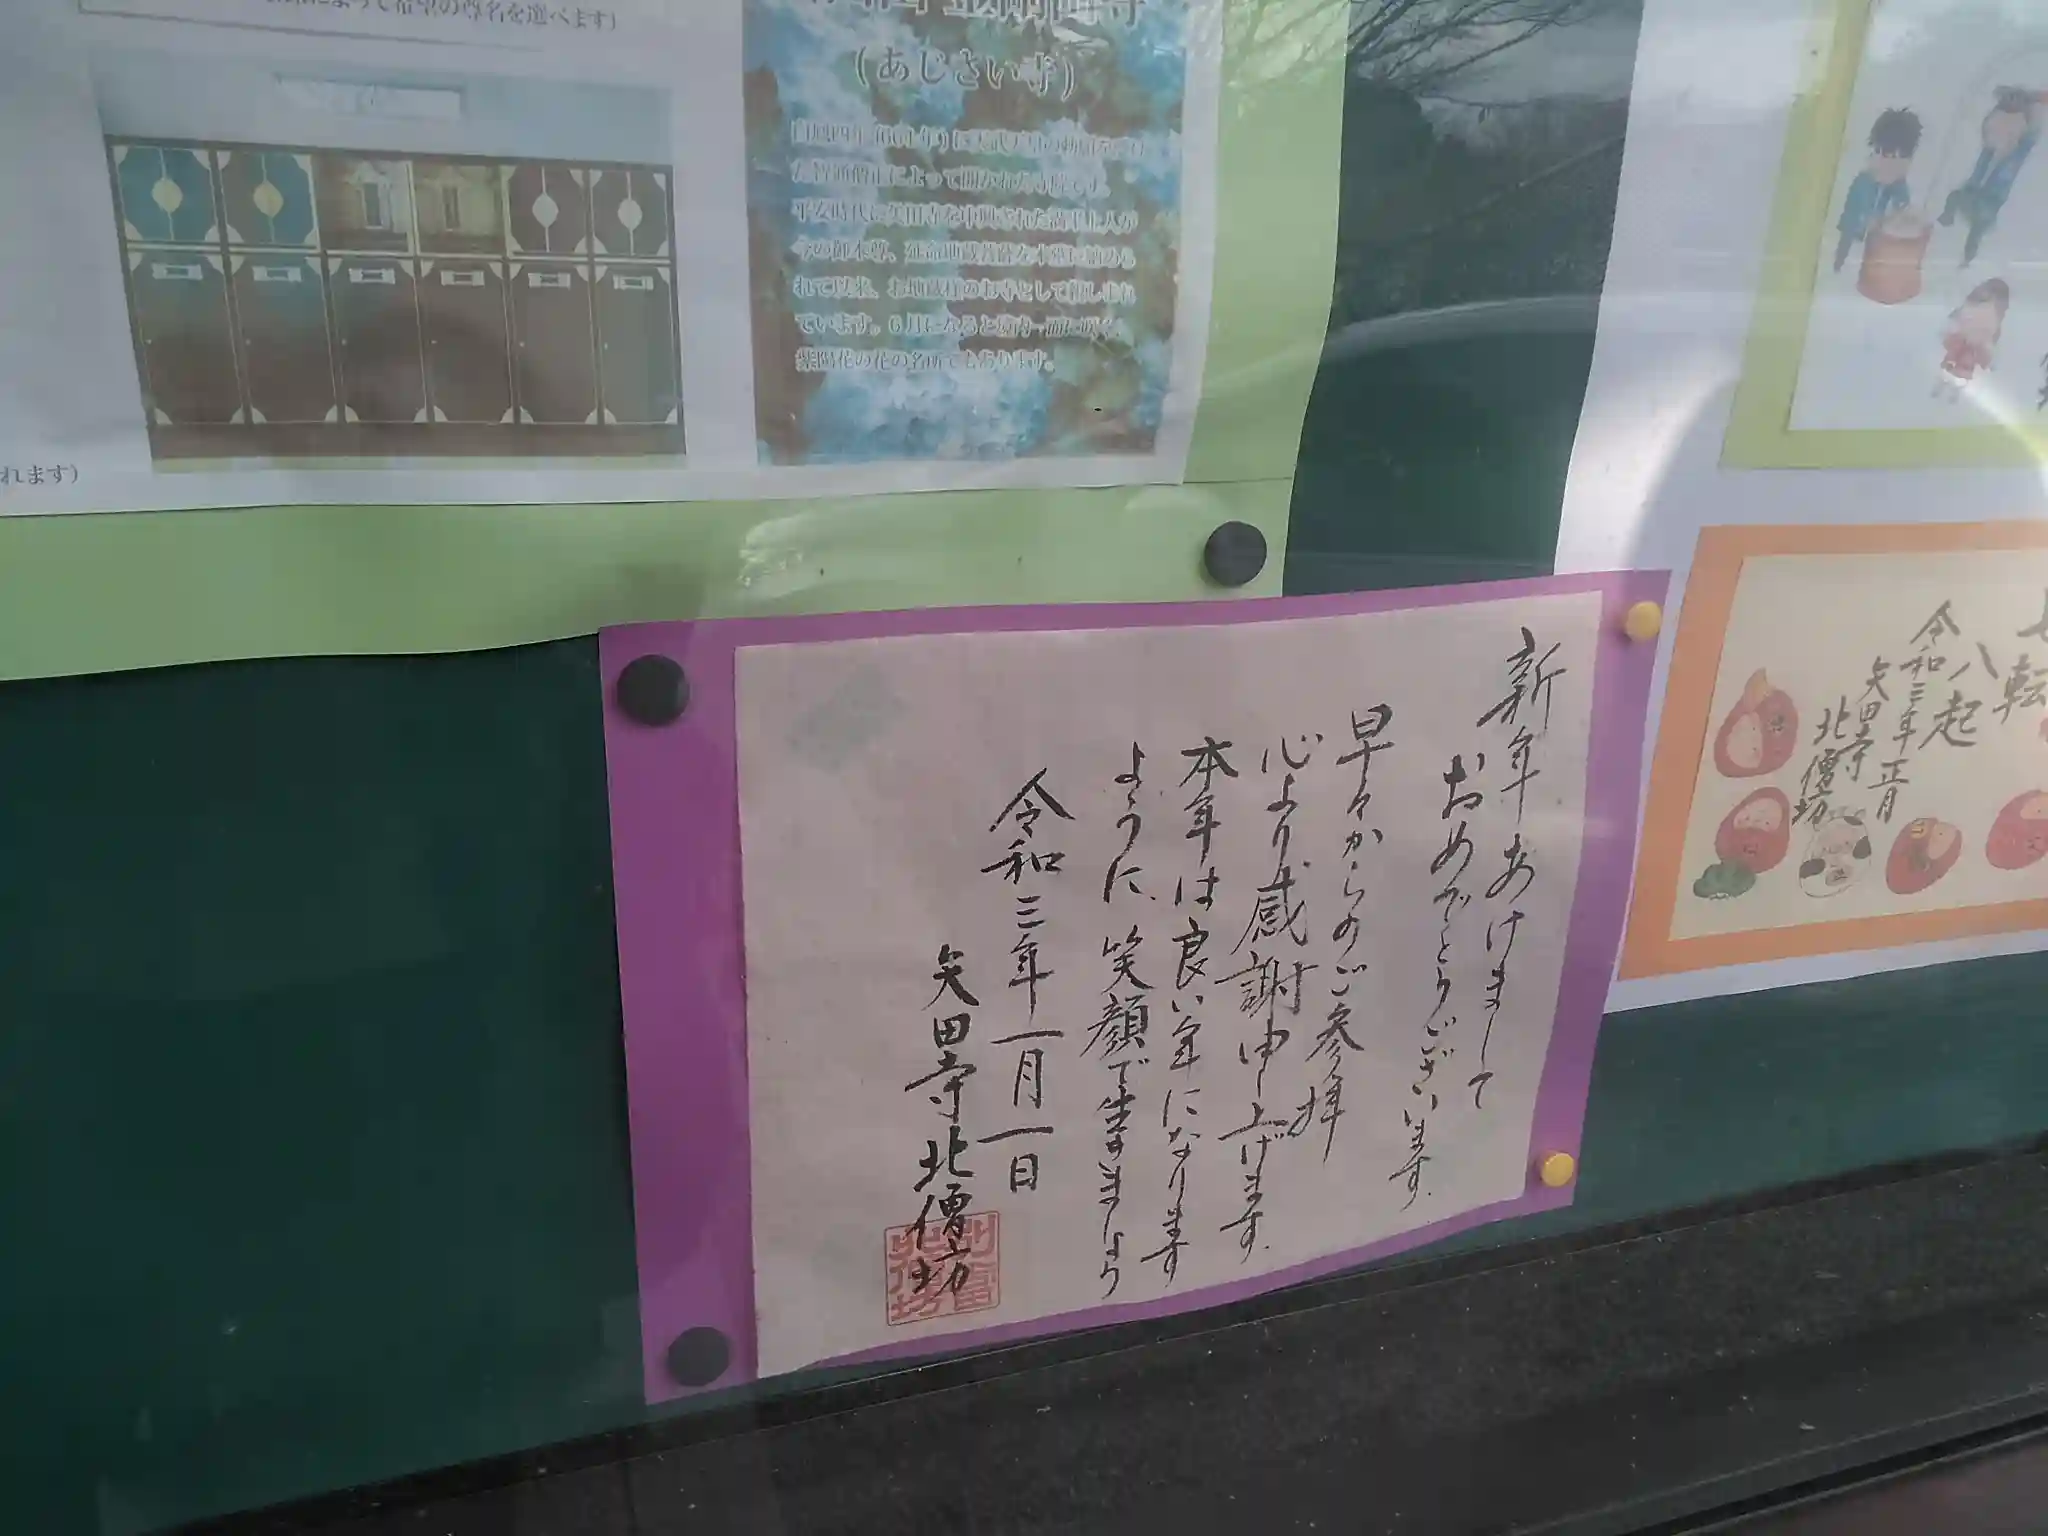 によって希望の尊名を選べます)
れます)
(あじさい寺)
平安時代に矢田寺を中興された満米上人が
今の御本尊、延命地蔵菩薩を本堂に納めら
れて以来、お地蔵様のお寺として親しまれ
ています。6月になると境内一面に咲く、
紫陽花の花の名所でもあります。
新年あけまして
おめでとうございます。
早々からのご参拝
心より感謝申し上げます。
本年は良い年になります
ように、笑顔で生きましょう
令和三年一月一日
矢田寺北僧坊
七転
八起
令和三年正月
矢田寺
北僧坊